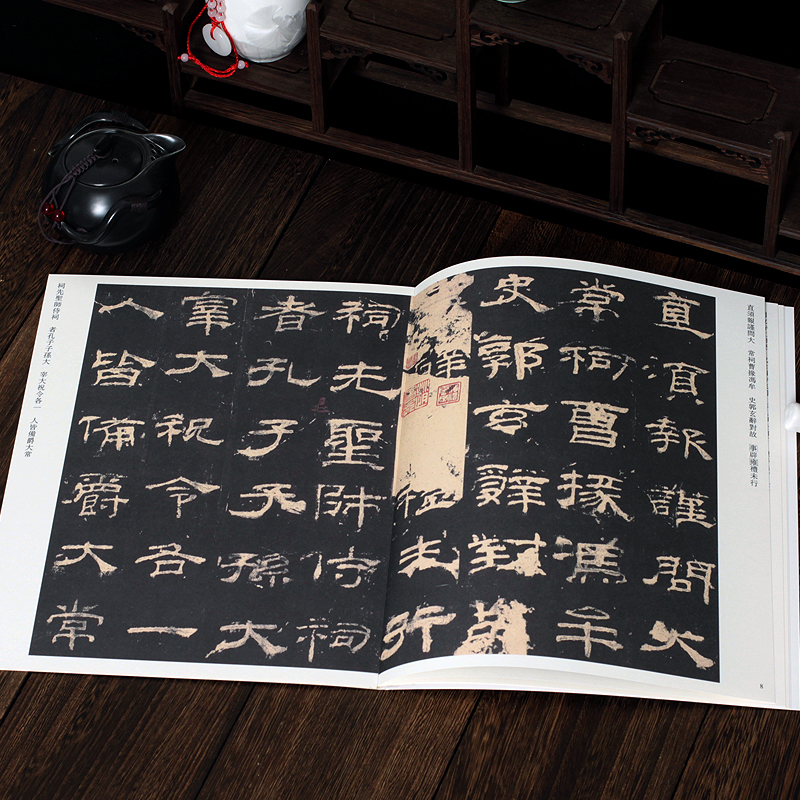 直須報謹問大　常祠曹掾馮牟　史郭玄辭對故　事辟雍禮未行
直須報謹問大
常祠曹掾馮牟
史郭玄辭對故
禮未行
祠先聖師侍祠
者孔子子孫大
宰大祝令各一
人皆備爵大常
祠先聖師侍祠　者孔子子孫大　宰大祝令各一　人皆備爵大常
8